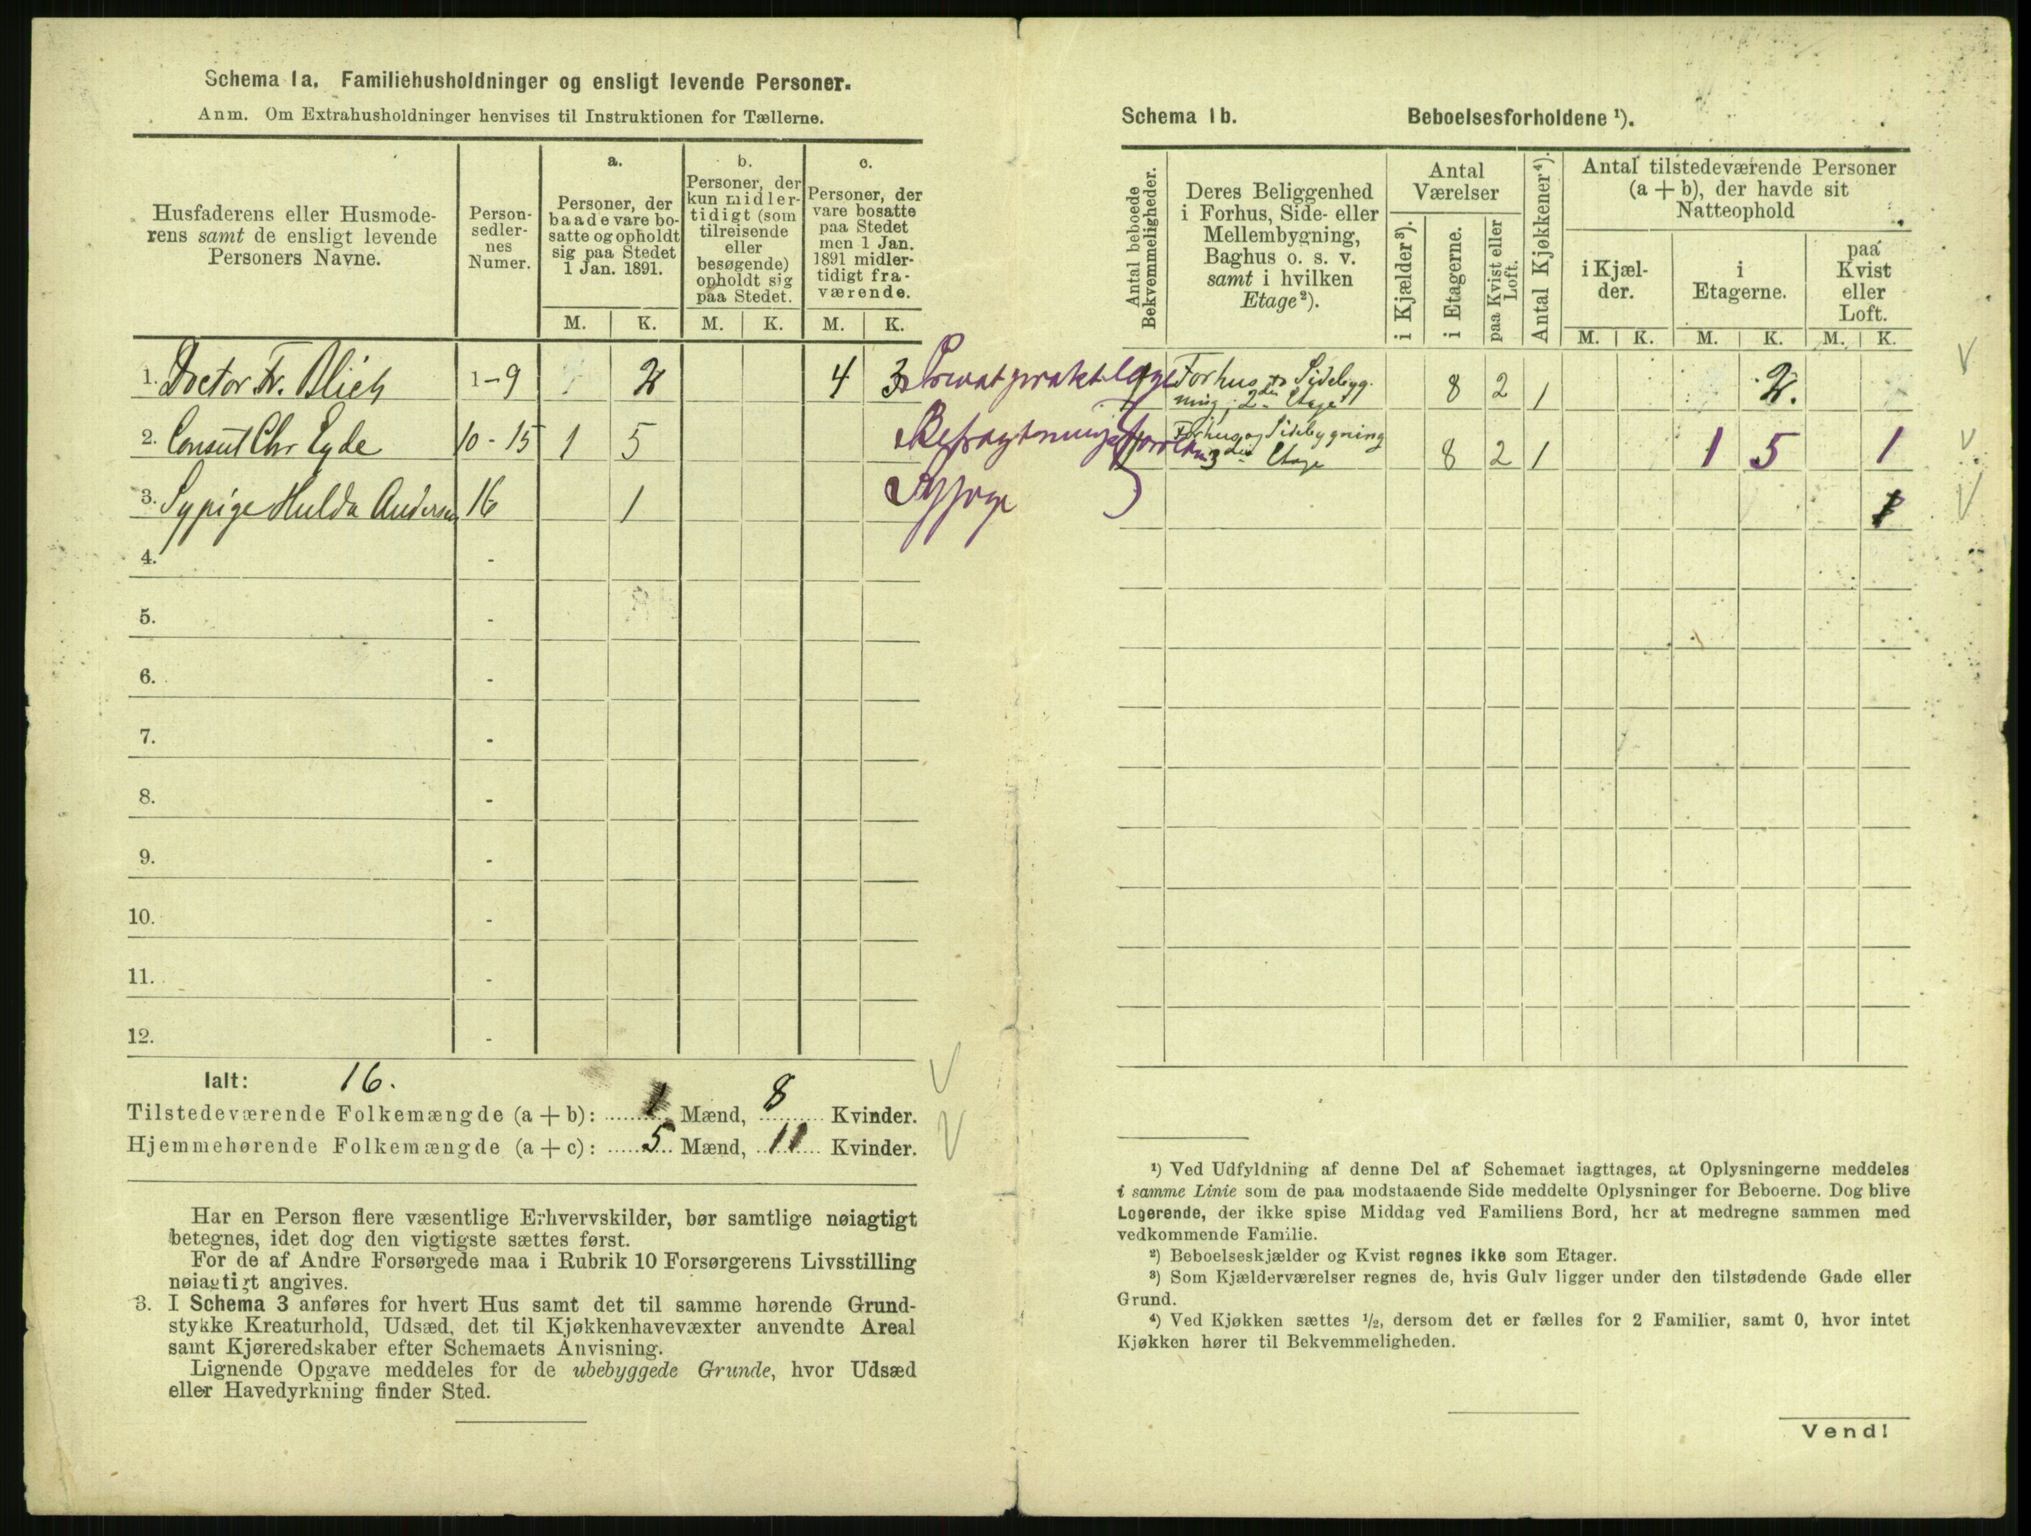 Schema 1a. Familiehusholdninger og ensligt levende Personer.
Anm. Om Extrahusholdninger henvises til Instruktionen for Tællerne.
Husfaderens eller Husmoderens samt de ensligt levende Personers Navne.
Personsedlernes Numer.
a.
Personer, der baade vare bosatte og opholdt sig paa Stedet 1 Jan. 1891.
b.
Personer, der kun midlertidigt (som tilreisende eller besøgende) opholdt sig paa Stedet.
c.
Personer, der vare bosatte paa Stedet men 1 Jan. 1891 midlertidigt fraværende.
M. K. M. K. M. K.
1. Doctor Fr. Blich 1-9 2 4 3 Privat prakt. læge
2. Consul Chr Eyde 10-15 1 5 Befragtningsforretn
3. Sypige Hulda Andersen 16 1 Sypige
4. -
5. -
6. -
7. -
8. -
9. -
10. -
11. -
12. -
Ialt: 16.
Tilstedeværende Folkemængde (a + b): 1 Mænd, 8 Kvinder.
Hjemmehørende Folkemængde (a + c): 5 Mænd, 11 Kvinder.
Har en Person flere væsentlige Erhvervskilder, bør samtlige nøiagtigt
betegnes, idet dog den vigtigste sættes først.
For de af Andre Forsørgede maa i Rubrik 10 Forsørgerens Livsstilling
nøiagtigt angives.
3. I Schema 3 anføres for hvert Hus samt det til samme hørende Grund-
stykke Kreaturhold, Udsæd, det til Kjøkkenhavevæxter anvendte Areal
samt Kjøreredskaber efter Schemaets Anvisning.
Lignende Opgave meddeles for de ubebyggede Grunde, hvor Udsæd
eller Havedyrkning finder Sted.
Schema 1b. Beboelsesforholdene ¹).
Antal beboede Bekvemmeligheder.
Deres Beliggenhed i Forhus, Side- eller Mellembygning, Baghus o. s. v. samt i hvilken Etage²).
Antal Værelser
i Kjælder³).
i Etagerne.
paa Kvist eller Loft.
Antal Kjøkkener⁴).
Antal tilstedeværende Personer (a + b), der havde sit Natteophold
i Kjælder.
i Etagerne.
paa Kvist eller Loft.
M. K. M. K. M. K.
1 Forhus & Sidebygning, 2den Etage 8 2 1 2.
1 Forhus og Sidebygning 3die Etage 8 2 1 1 5 1
1
¹) Ved Udfyldning af denne Del af Schemaet iagttages, at Oplysningerne meddeles
i samme Linie som de paa modstaaende Side meddelte Oplysninger for Beboerne. Dog blive
Logerende, der ikke spise Middag ved Familiens Bord, her at medregne sammen med
vedkommende Familie.
²) Beboelseskjælder og Kvist regnes ikke som Etager.
³) Som Kjælderværelser regnes de, hvis Gulv ligger under den tilstødende Gade eller
Grund.
⁴) Ved Kjøkken sættes ½, dersom det er fælles for 2 Familier, samt 0, hvor intet
Kjøkken hører til Bekvemmeligheden.
Vend!